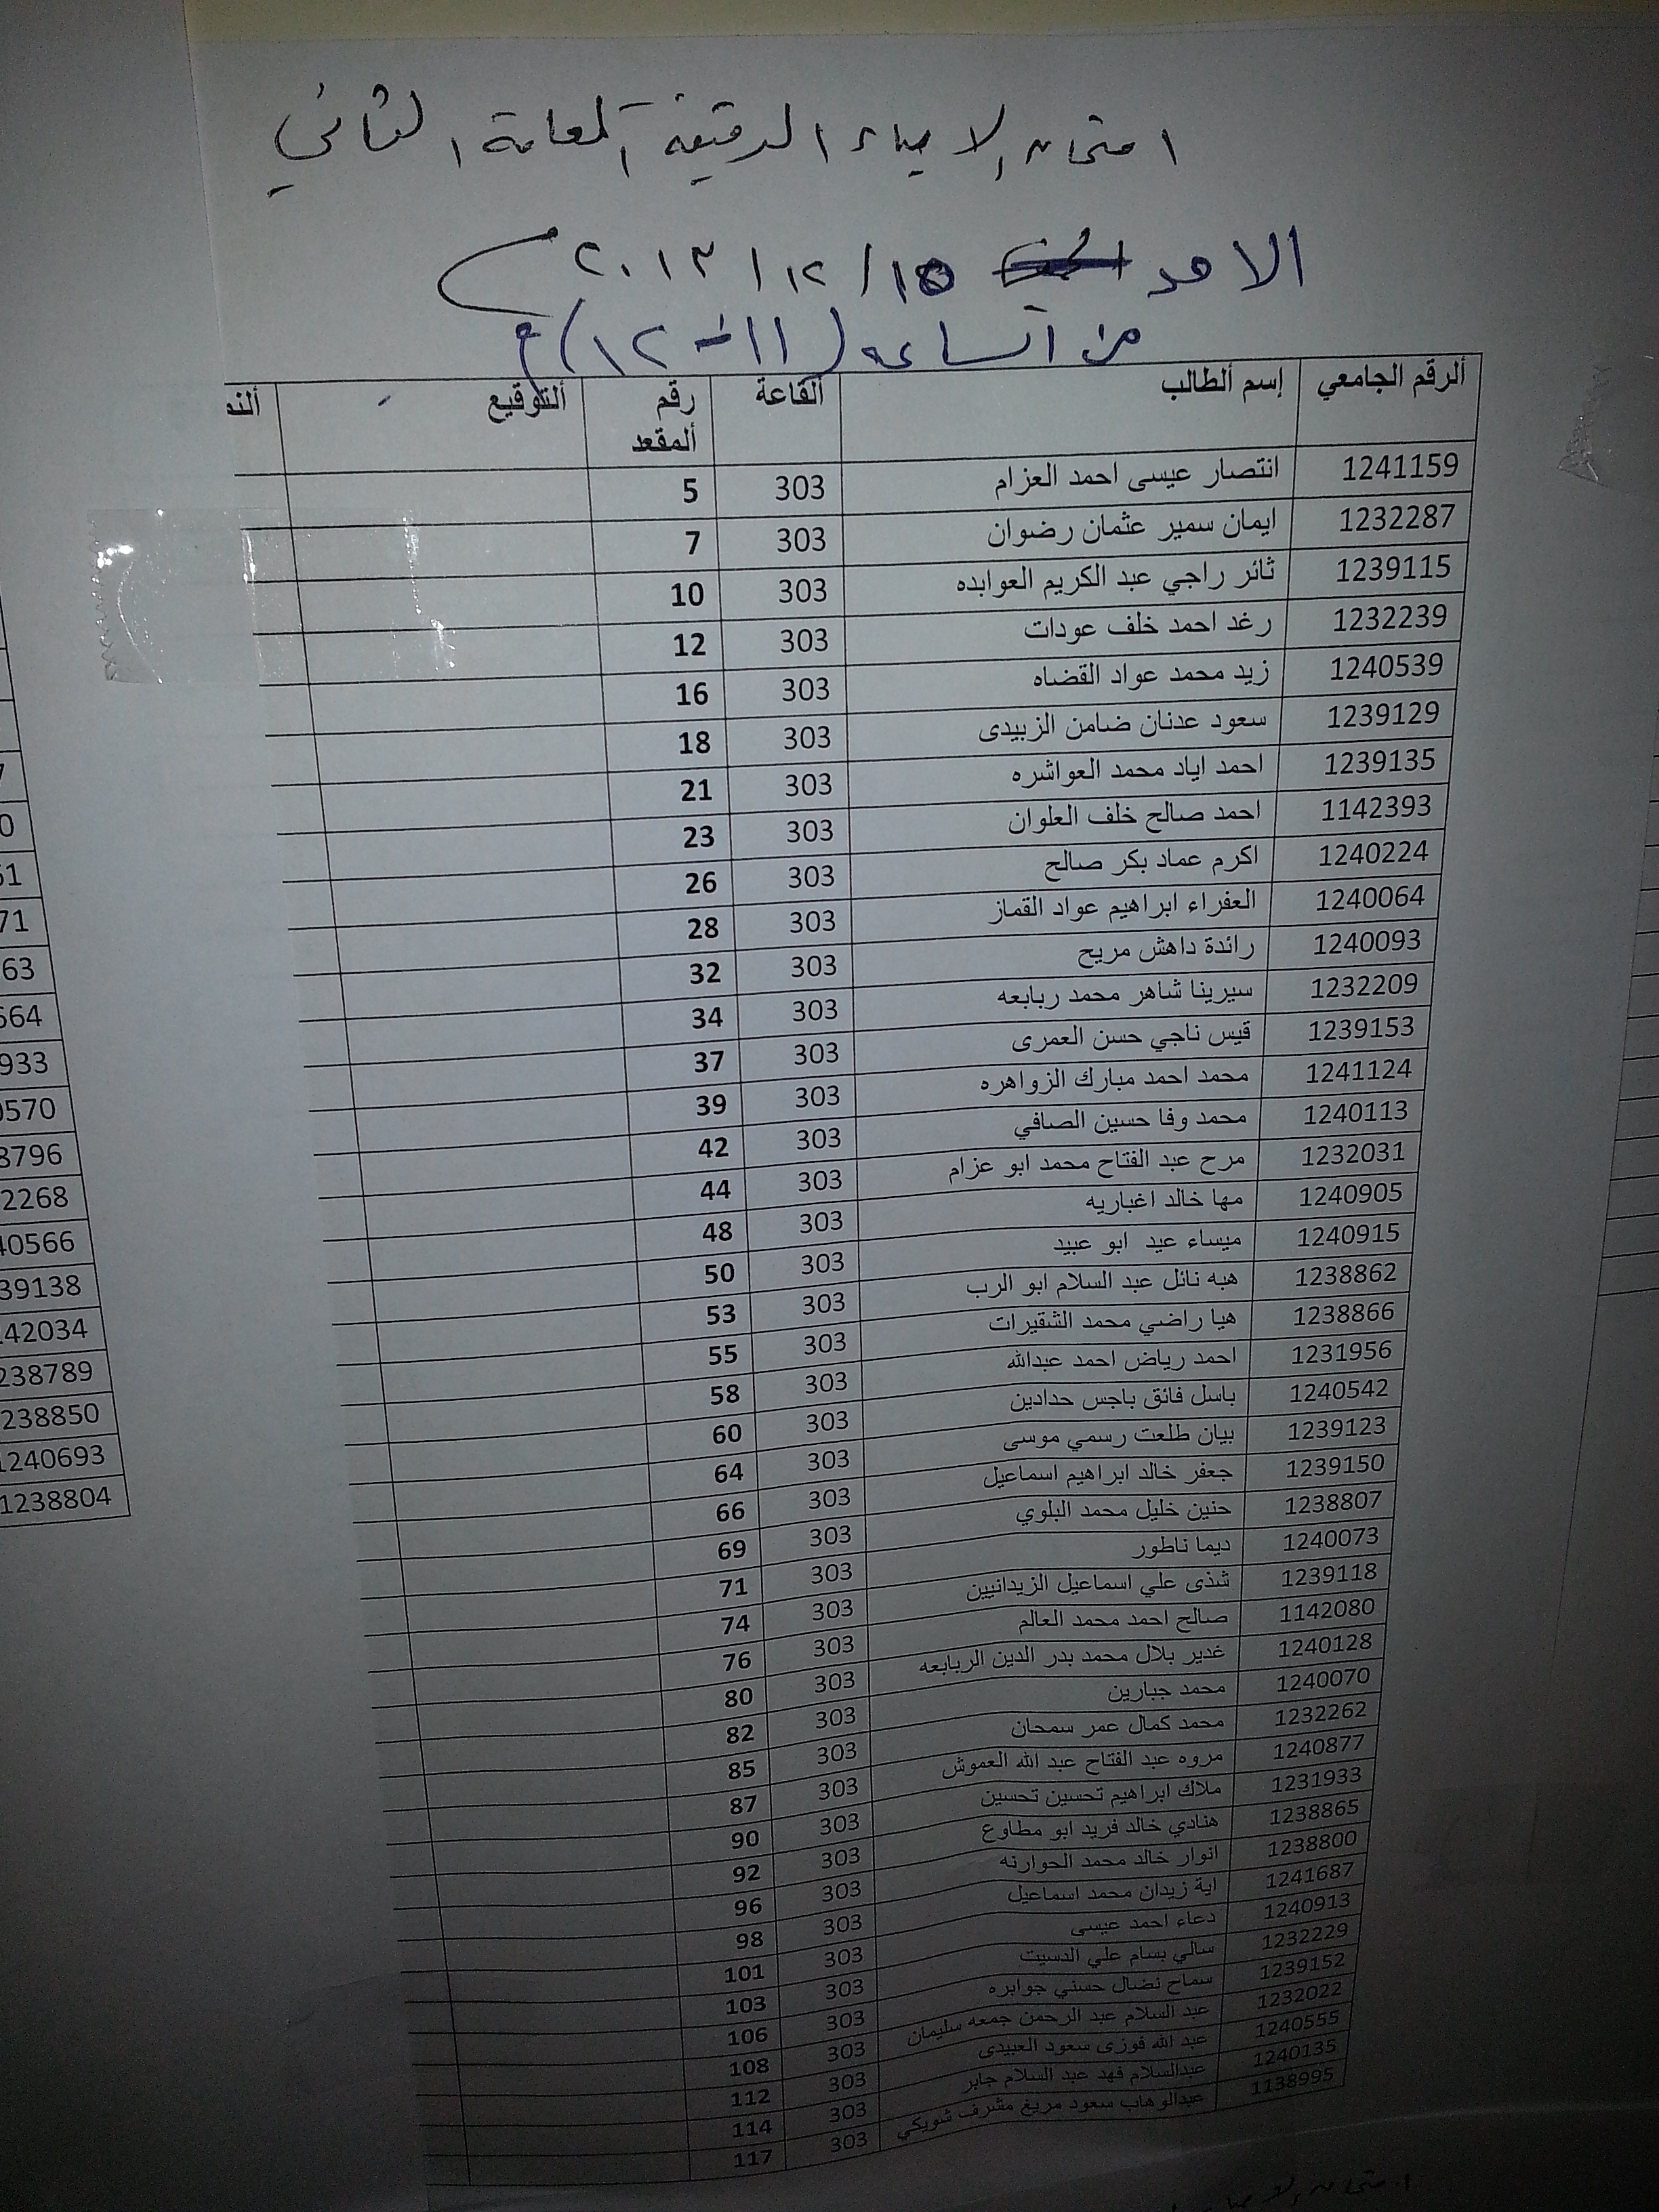 امتحان الاحياء الدقيقة العامة الثاني
الاحد 15/١٢/٢٠١٣م
من الساعة (11-١٢)ع
ألرقم الجامعي إسم ألطالب ألقاعة رقم ألمقعد ألتوقيع
1241159 انتصار عيسى احمد العزام 303 5
1232287 ايمان سمير عثمان رضوان 303 7
1239115 ثائر راجي عبد الكريم العوابده 303 10
1232239 رغد احمد خلف عودات 303 12
1240539 زيد محمد عواد القضاه 303 16
1239129 سعود عدنان ضامن الزبيدى 303 18
1239135 احمد اياد محمد العواشره 303 21
1142393 احمد صالح خلف العلوان 303 23
1240224 اكرم عماد بكر صالح 303 26
1240064 العفراء ابراهيم عواد القماز 303 28
1240093 رائدة داهش مريح 303 32
1232209 سيرينا شاهر محمد ربابعه 303 34
1239153 قيس ناجي حسن العمرى 303 37
1241124 محمد احمد مبارك الزواهره 303 39
1240113 محمد وفا حسين الصافي 303 42
1232031 مرح عبد الفتاح محمد ابو عزام 303 44
1240905 مها خالد اغباريه 303 48
1240915 ميساء عيد ابو عبيد 303 50
1238862 هبه نائل عبد السلام ابو الرب 303 53
1238866 هيا راضي محمد الشقيرات 303 55
1231956 احمد رياض احمد عبدالله 303 58
1240542 باسل فائق باجس حدادين 303 60
1239123 بيان طلعت رسمي موسى 303 64
1239150 جعفر خالد ابراهيم اسماعيل 303 66
1238807 حنين خليل محمد البلوي 303 69
1240073 ديما ناطور 303 71
1239118 شذى علي اسماعيل الزيدانيين 303 74
1142080 صالح احمد محمد العالم 303 76
1240128 غدير بلال محمد بدر الدين الربابعه 303 80
1240070 محمد جبارين 303 82
1232262 محمد كمال عمر سمحان 303 85
1240877 مروه عبد الفتاح عبد الله العموش 303 87
1231933 ملاك ابراهيم تحسين تحسين 303 90
1238865 هنادي خالد فريد ابو مطاوع 303 92
1238800 انوار خالد محمد الحوارنه 303 96
1241687 اية زيدان محمد اسماعيل 303 98
1240913 دعاء احمد عيسى 303 101
1232229 سالي بسام علي الدسيت 303 103
1239152 سماح نضال حسني جوابره 303 106
1232022 عبد السلام عبد الرحمن جمعه سليمان 303 108
1240555 عبد الله فوزى سعود العبيدى 303 112
1240135 عبدالسلام فهد عبد السلام جابر 303 114
1138995 عبدالوهاب سعود مريغ مشرف شويكي 303 117
7
0
51
71
63
664
933
0570
8796
2268
40566
39138
142034
238789
238850
1240693
1238804